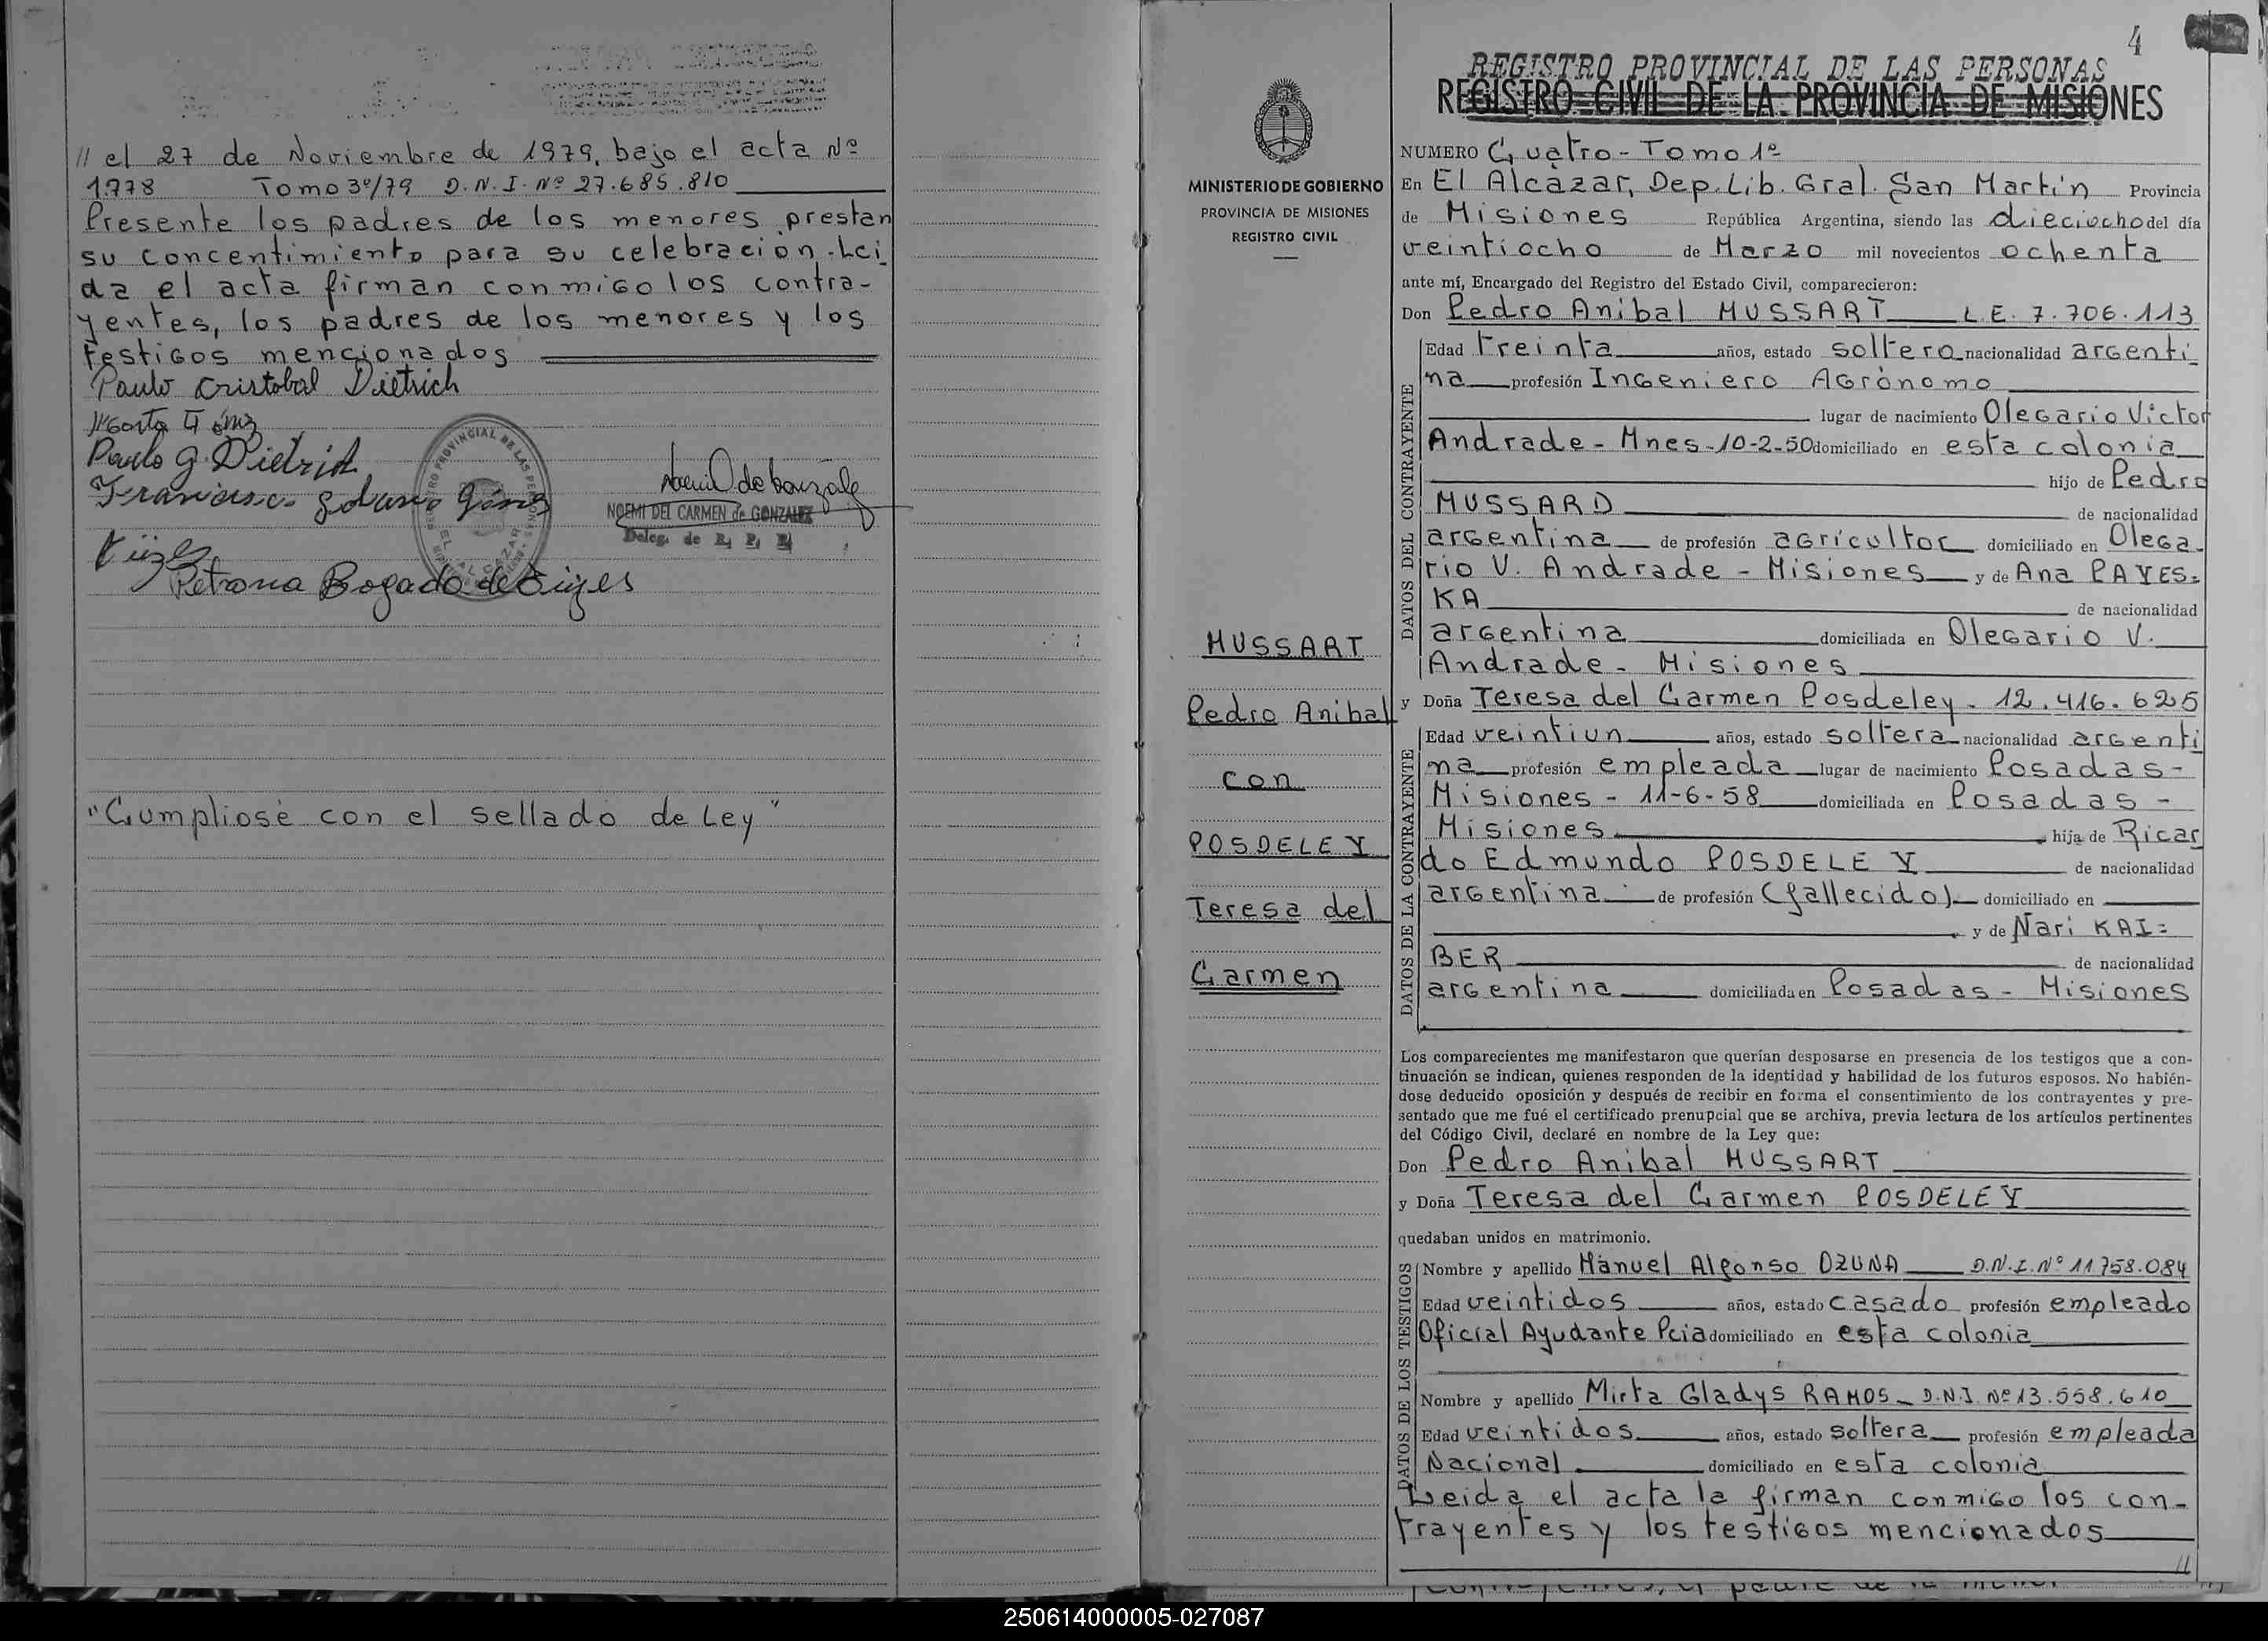 // el 27 de Noviembre de 1979, bajo el acta Nº
1.778 Tomo 3º/79 D.N.I. Nº 27.685.810
Presente los padres de los menores prestan
su concentimiento para su celebración. Lei
da el acta firman conmigo los contra-
yentes, los padres de los menores y los
testigos mencionados
Paulo Cristobal Dietrich
Paulo G. Dietrich
NOEMI DEL CARMEN de GONZALEZ
Deleg. de R. P. P.
Petrona Bogado de
"Cumpliosé con el sellado de Ley"
4
REGISTRO PROVINCIAL DE LAS PERSONAS
REGISTRO CIVIL DE LA PROVINCIA DE MISIONES
MINISTERIO DE GOBIERNO
PROVINCIA DE MISIONES
REGISTRO CIVIL
MUSSART
Pedro Anibal
con
POSDELEY
Teresa del
Carmen
NUMERO Cuatro - Tomo 1º
En El Alcázar, Dep. Lib. Gral. San Martín Provincia
de Misiones República Argentina, siendo las dieciocho del día
veintiocho de Marzo mil novecientos ochenta
ante mí, Encargado del Registro del Estado Civil, comparecieron:
Don Pedro Anibal MUSSART L.E. 7.706.113
DATOS DEL CONTRAYENTE
Edad treinta años, estado soltero nacionalidad argenti
na profesión Ingeniero Agrónomo
lugar de nacimiento Olegario Victor
Andrade - Mnes - 10-2-50 domiciliado en esta colonia
hijo de Pedro
MUSSARD de nacionalidad
argentina de profesión agricultor domiciliado en Olega-
rio V. Andrade - Misiones y de Ana PAYES=
KA de nacionalidad
argentina domiciliada en Olegario V.
Andrade - Misiones
y Doña Teresa del Carmen Posdeley - 12.416.625
DATOS DE LA CONTRAYENTE
Edad veintiun años, estado soltera nacionalidad argenti
na profesión empleada lugar de nacimiento Posadas -
Misiones - 11-6-58 domiciliada en Posadas -
Misiones hija de Ricar
do Edmundo POSDELEY de nacionalidad
argentina de profesión (fallecido) domiciliado en
y de Nari KAI=
BER de nacionalidad
argentina domiciliada en Posadas - Misiones
Los comparecientes me manifestaron que querían desposarse en presencia de los testigos que a con-
tinuación se indican, quienes responden de la identidad y habilidad de los futuros esposos. No habién-
dose deducido oposición y después de recibir en forma el consentimiento de los contrayentes y pre-
sentado que me fué el certificado prenupcial que se archiva, previa lectura de los artículos pertinentes
del Código Civil, declaré en nombre de la Ley que:
Don Pedro Anibal MUSSART
y Doña Teresa del Carmen POSDELEY
quedaban unidos en matrimonio.
DATOS DE LOS TESTIGOS
Nombre y apellido Manuel Alfonso OZUNA D.N.I. Nº 11.758.084
Edad veintidos años, estado casado profesión empleado
Oficial Ayudante Pcia domiciliado en esta colonia
Nombre y apellido Mirta Gladys RAMOS - D.N.I. Nº 13.558.610
Edad veintidos años, estado soltera profesión empleada
Nacional domiciliado en esta colonia
Leida el acta la firman conmigo los con-
trayentes y los testigos mencionados
//
250614000005-027087